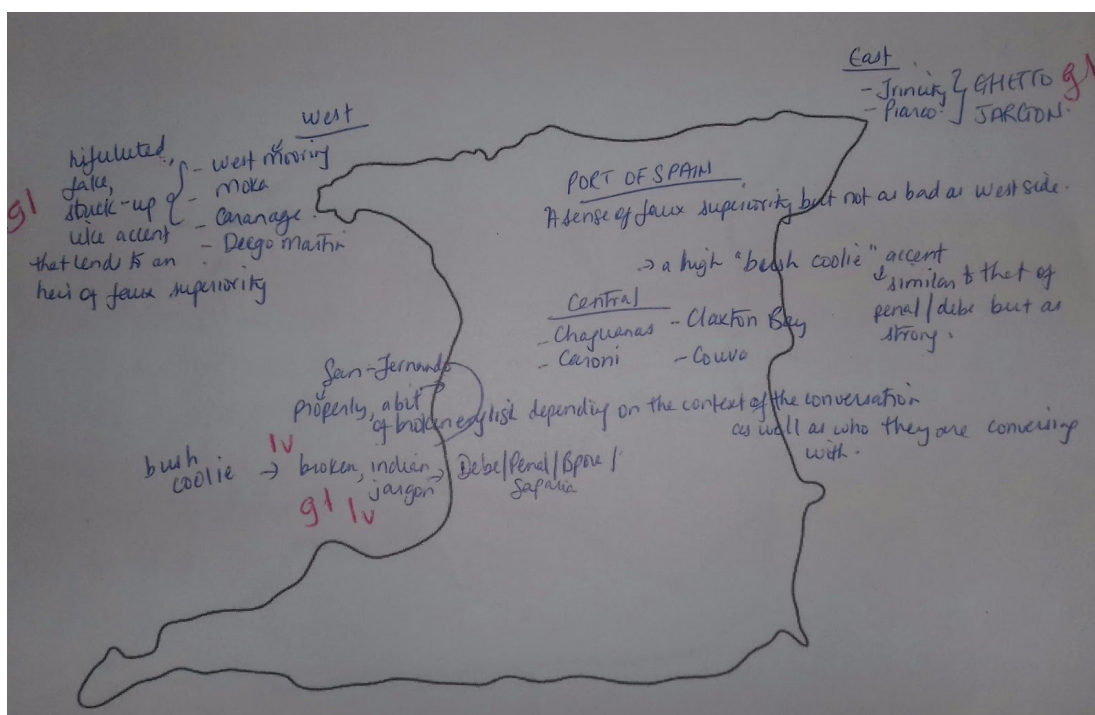 East
- Trincity } GHETTO gl
- Piarco } JARGON.
West
hifuluted,
fake,
stuck-up
like accent
that lends to an
heir of faux superiority
gl
- West mooring
- moka
- Caranage
- Deego martin
PORT OF SPAIN
A sense of faux superiority but not as bad as west side.
→ a high "bush coolie" accent
similar to that of
penal/debe but as
strong.
Central
- Chaguanas - Claxton Bay
- Caroni - Couva
San-Fernando
properly, a bit
of broken english depending on the context of the conversation
as well as who they are conversing
with.
bush
coolie → broken, indian
jargon → Debe/Penal/Bpore/
Saparia
lv
gl lv